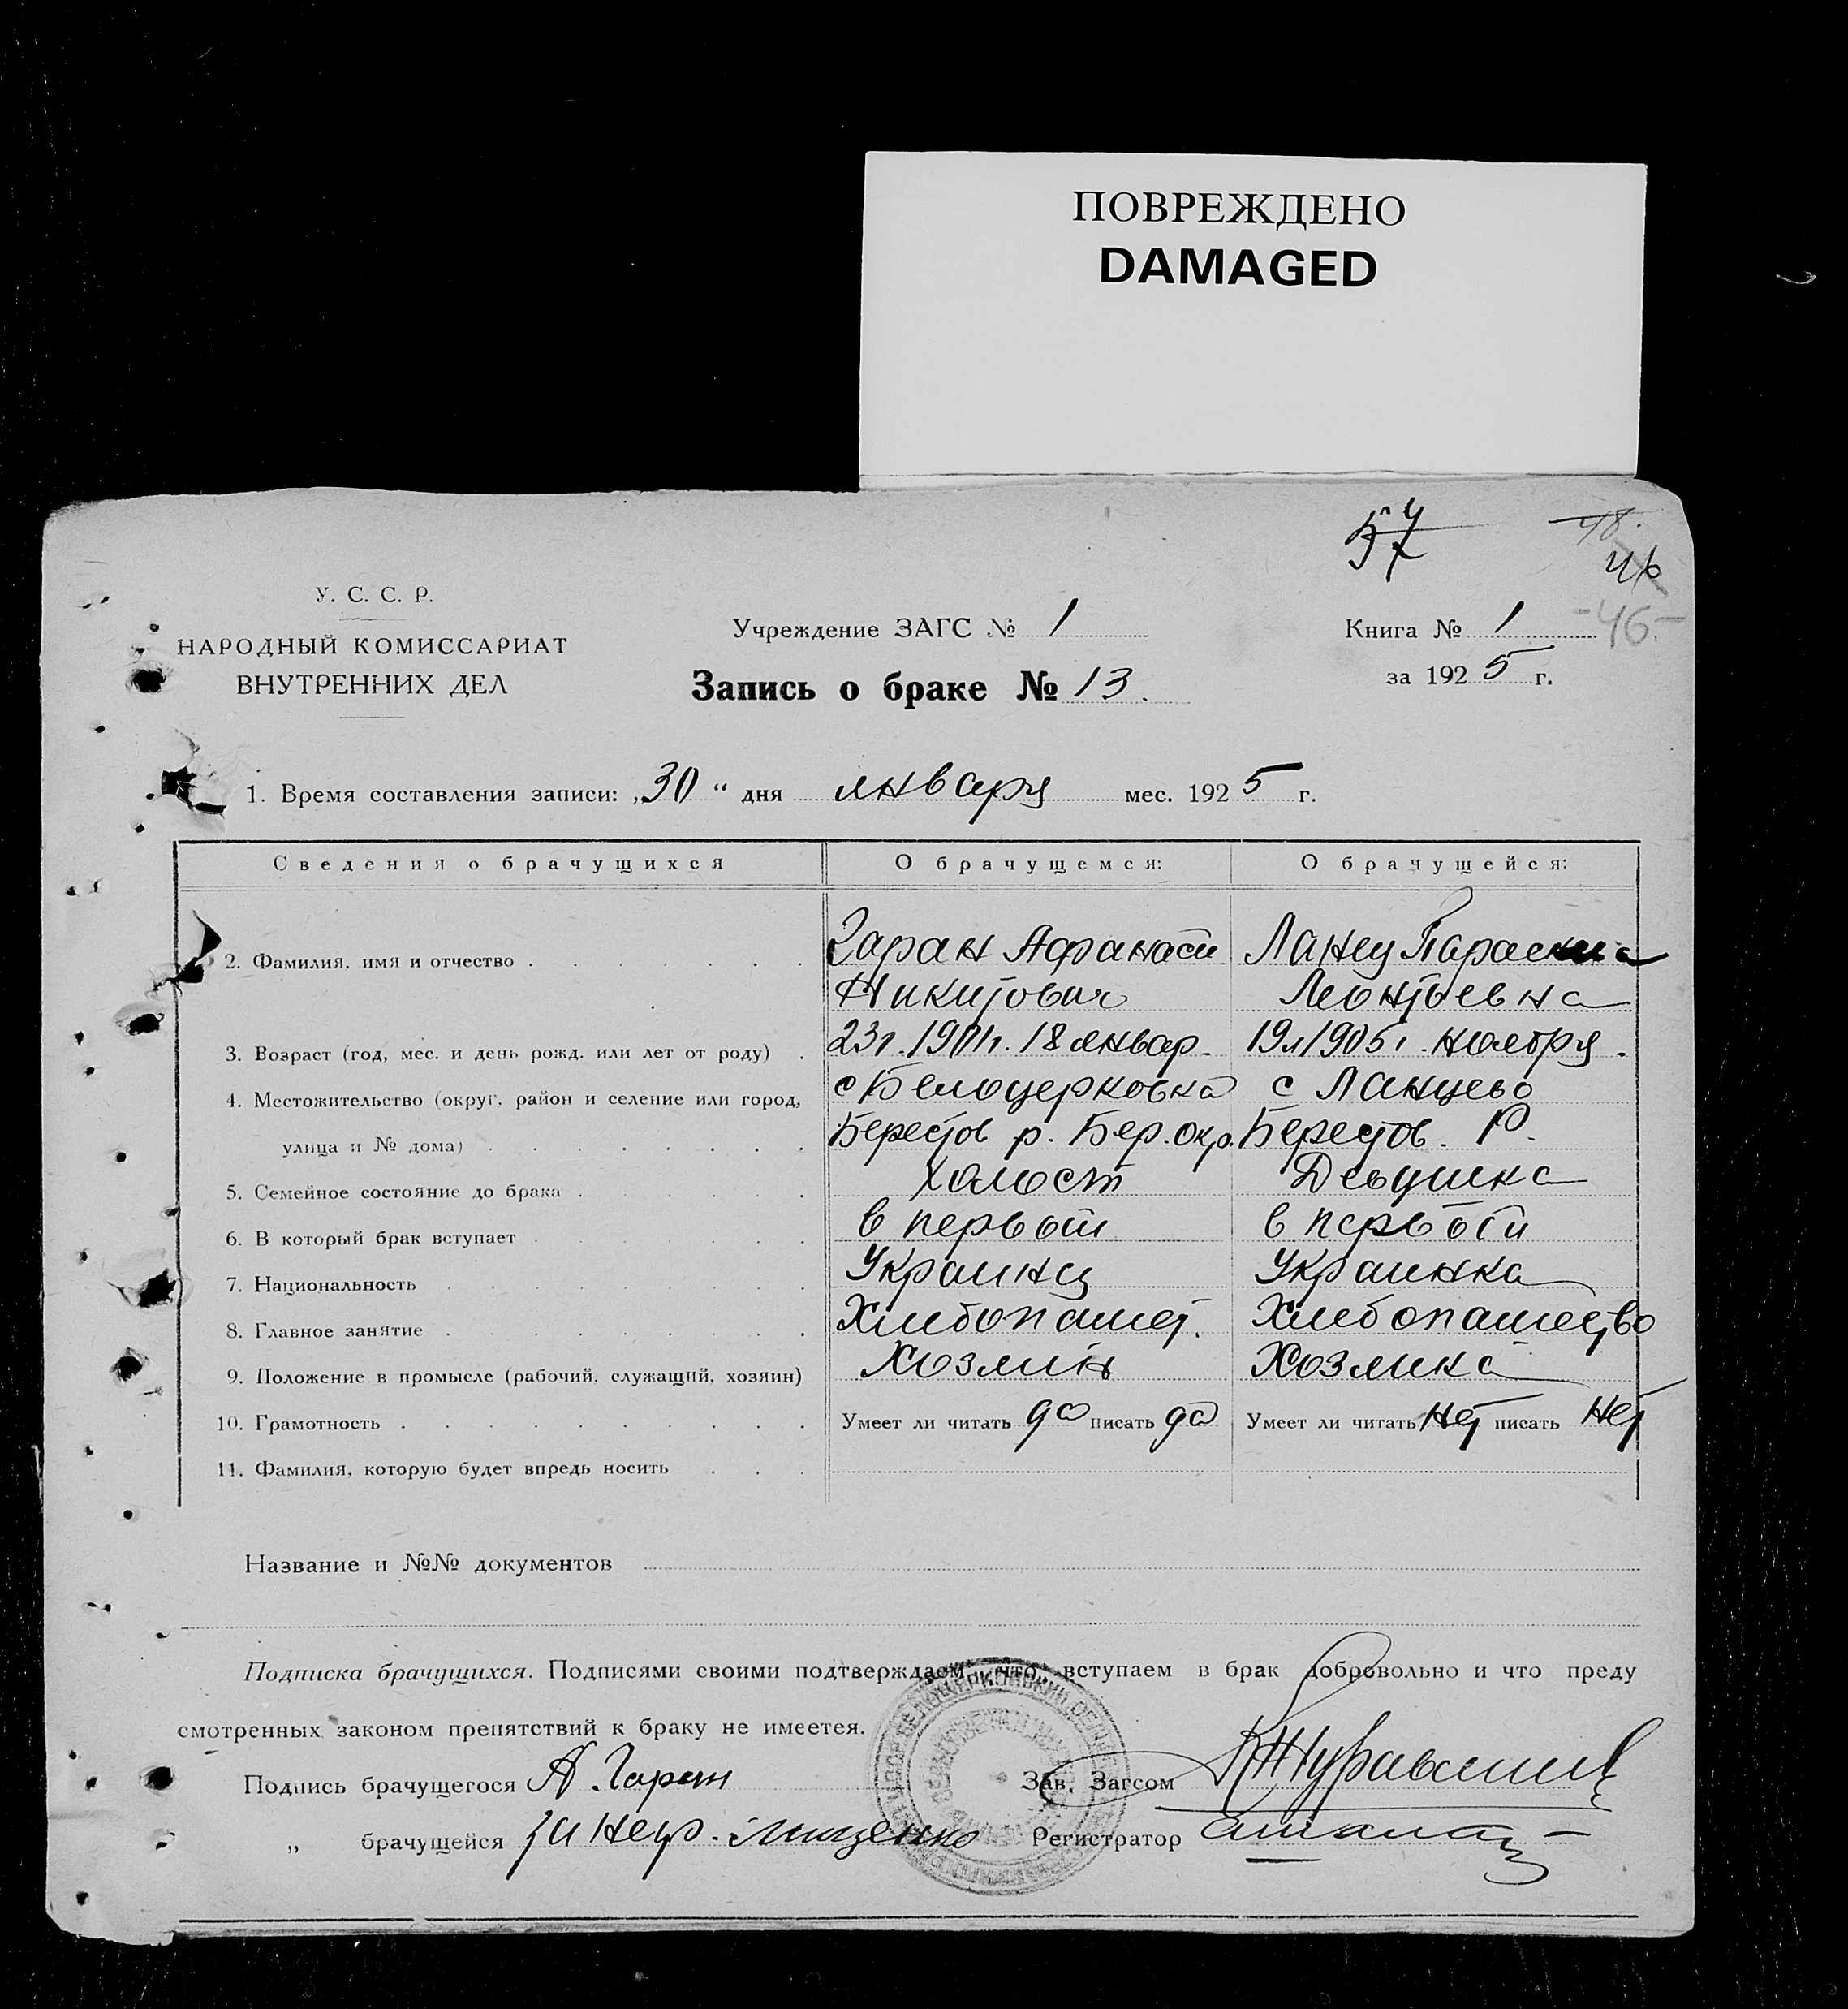 ПОВРЕЖДЕНО
DAMAGED
57
48.
46
-46-
У. С. С. Р.
НАРОДНЫЙ КОМИССАРИАТ
ВНУТРЕННИХ ДЕЛ
Учреждение ЗАГС № 1
Запись о браке № 13.
Книга № 1
за 1925 г.
1. Время составления записи: „30“ дня января мес. 1925 г.
Сведения о брачущихся О брачущемся: О брачущейся:
2. Фамилия, имя и отчество Гаран Афанасий Ланец Параскева
Никитович Леонтьевна
3. Возраст (год, мес. и день рожд. или лет от роду) 23г. 1901г. 18 январ. 19л 1905г. ноября.
4. Местожительство (округ, район и селение или город, с Белоцерковка с Ланцево
улица и № дома) Берестов р. Бер. окр. Берестов. Р.
5. Семейное состояние до брака холост Девушка
6. В который брак вступает в первой в первой
7. Национальность Украинец Украинка
8. Главное занятие Хлебопашест. Хлебопашество
9. Положение в промысле (рабочий, служащий, хозяин) Хозяин Хозяика
10. Грамотность Умеет ли читать да писать да Умеет ли читать нет писать нет
11. Фамилия, которую будет впредь носить
Название и №№ документов
Подписка брачущихся. Подписями своими подтверждаем, что вступаем в брак добровольно и что преду
смотренных законом препятствий к браку не имеется.
Подпись брачущегося А. Гаран Зав. Загсом
„ брачущейся за негр. Мищенко Регистратор